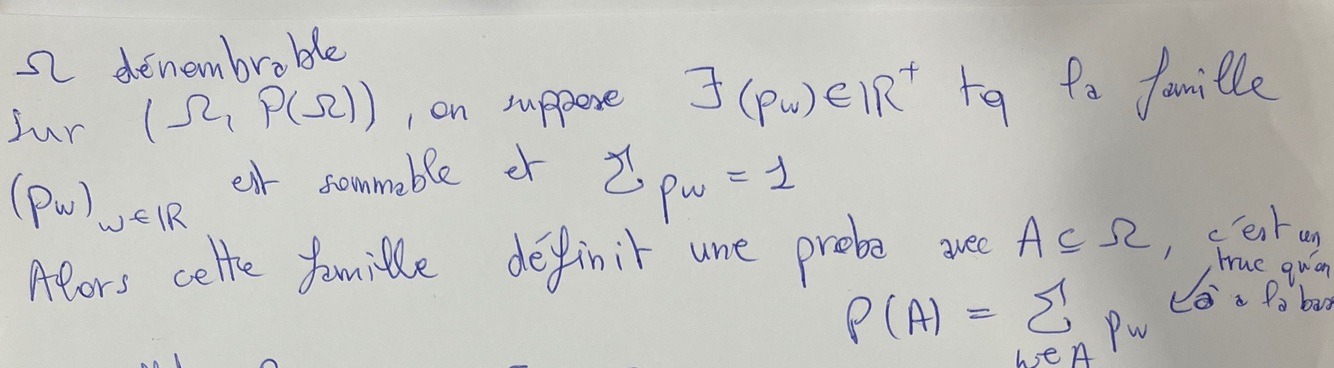 Ω dénombrable
sur (Ω, P(Ω)), on suppose ∃ (pω) ∈ ℝ⁺ tq la famille
(pω)ω∈ℝ est sommable et Σ pω = 1
Alors cette famille définit une proba avec A ⊆ Ω, c'est un
truc qu'on
P(A) = Σ pω a à la base
ω∈A